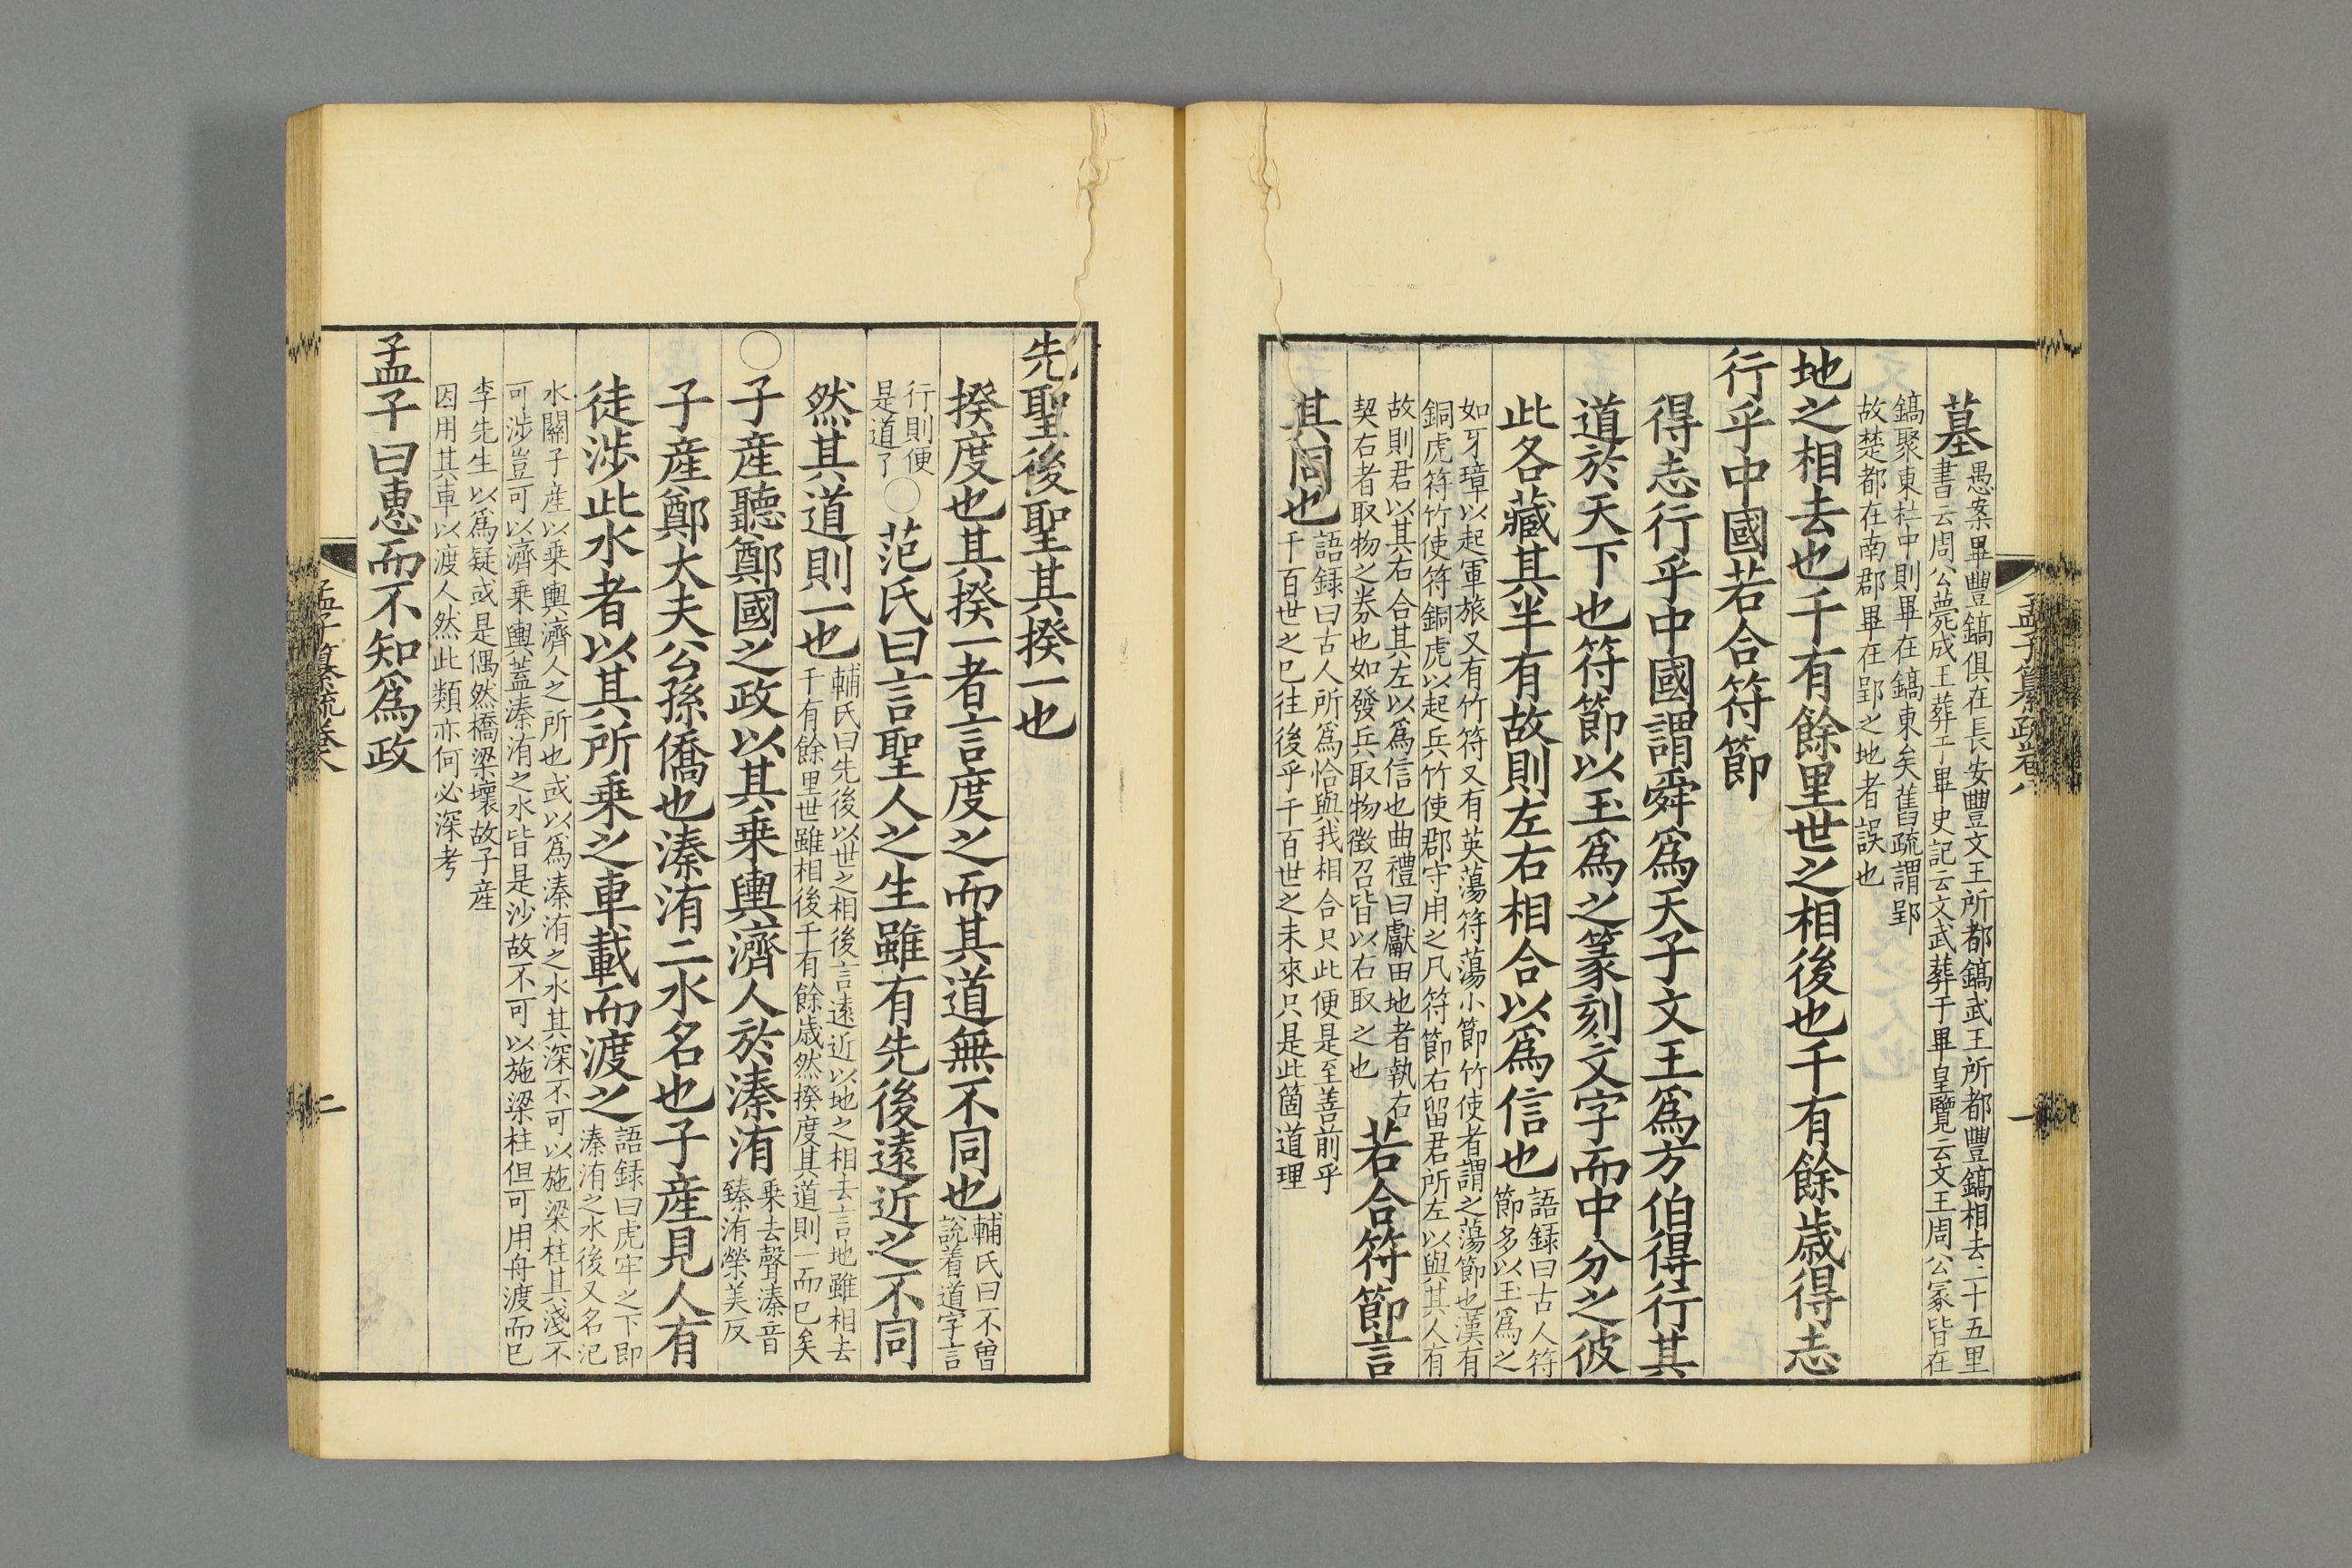 孟子纂疏卷八
一
墓
愚案畢豐鎬俱在長安豐文王所都鎬武王所都豐鎬相去二十五里
書云周公薨成王葬于畢史記云文武葬于畢皇覽云文王周公冢皆在
鎬聚東社中則畢在鎬東矣舊疏謂郢
故楚都在南郡畢在郢之地者誤也
地之相去也千有餘里世之相後也千有餘歲得志
行乎中國若合符節
得志行乎中國謂舜爲天子文王爲方伯得行其
道於天下也符節以玉爲之篆刻文字而中分之彼
此各藏其半有故則左右相合以爲信也
語録曰古人符
節多以玉爲之
如牙璋以起軍旅又有竹符又有英蕩符蕩小節竹使者謂之蕩節也漢有
銅虎符竹使符銅虎以起兵竹使郡守用之凡符節右留君所左以與其人有
故則君以其右合其左以爲信也曲禮曰獻田地者執右
契右者取物之券也如發兵取物徵召皆以右取之也
若合符節言
其同也
語録曰古人所爲恰與我相合只此便是至善前乎
千百世之已往後乎千百世之未來只是此箇道理
先聖後聖其揆一也
揆度也其揆一者言度之而其道無不同也
輔氏曰不曾
說着道字言
行則便
是道了
○范氏曰言聖人之生雖有先後遠近之不同
然其道則一也
輔氏曰先後以世之相後言遠近以地之相去言地雖相去
千有餘里世雖相後千有餘歲然揆度其道則一而已矣
○子産聽鄭國之政以其乗輿濟人於溱洧
乗去聲溱音
臻洧榮美反
子産鄭大夫公孫僑也溱洧二水名也子産見人有
徒涉此水者以其所乗之車載而渡之
語録曰虎牢之下即
溱洧之水後又名汜
水關子産以乗輿濟人之所也或以爲溱洧之水其深不可以施梁柱其淺不
可涉豈可以濟乗輿蓋溱洧之水皆是沙故不可以施梁柱但可用舟渡而已
李先生以爲疑或是偶然橋梁壞故子産
因用其車以渡人然此類亦何必深考
孟子曰惠而不知爲政
孟子纂疏卷八
二